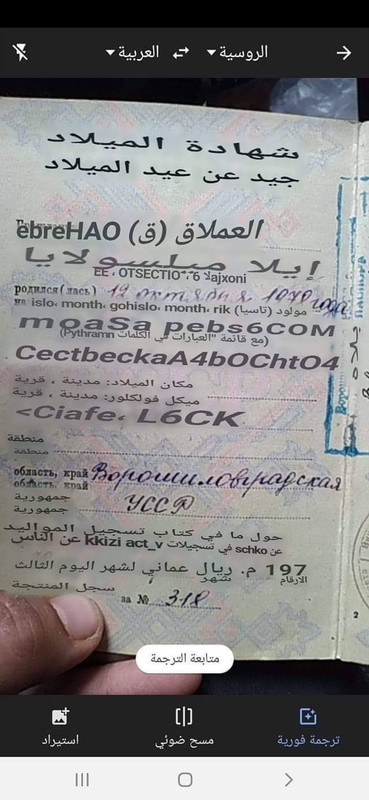 الروسية
العربية
شهادة الميلاد
جيد عن عيد الميلاد
العملاق (ق) ёbreHAO
إيلا ميلسولايا
родился(лась) 12 октября 1970 года
مولود (تاسيا) islo، month، gohislo، month، rik
moaSa pebs6COM
(مع قائمة "العبارات في الكلمات Pythramn)
CectbeckaA4bOChtO4
مكان الميلاد: مدينة ، قرية
ميكل فولكلور: مدينة ، قرية
<Ciafe، L6CK
منطقة
منطقة
область, край Ворошиловградская
область, край
جمهورية
جمهورية УССР
حول ما في كتاب تسجيل المواليد
عن schko في تسجيلات kkizi act_v عن الناس
197 م. ريال عماني لشهر اليوم الثالث
الأرقام شهر
سجل المنتجة
за № 318
2
متابعة الترجمة
استيراد
مسح ضوئي
ترجمة فورية